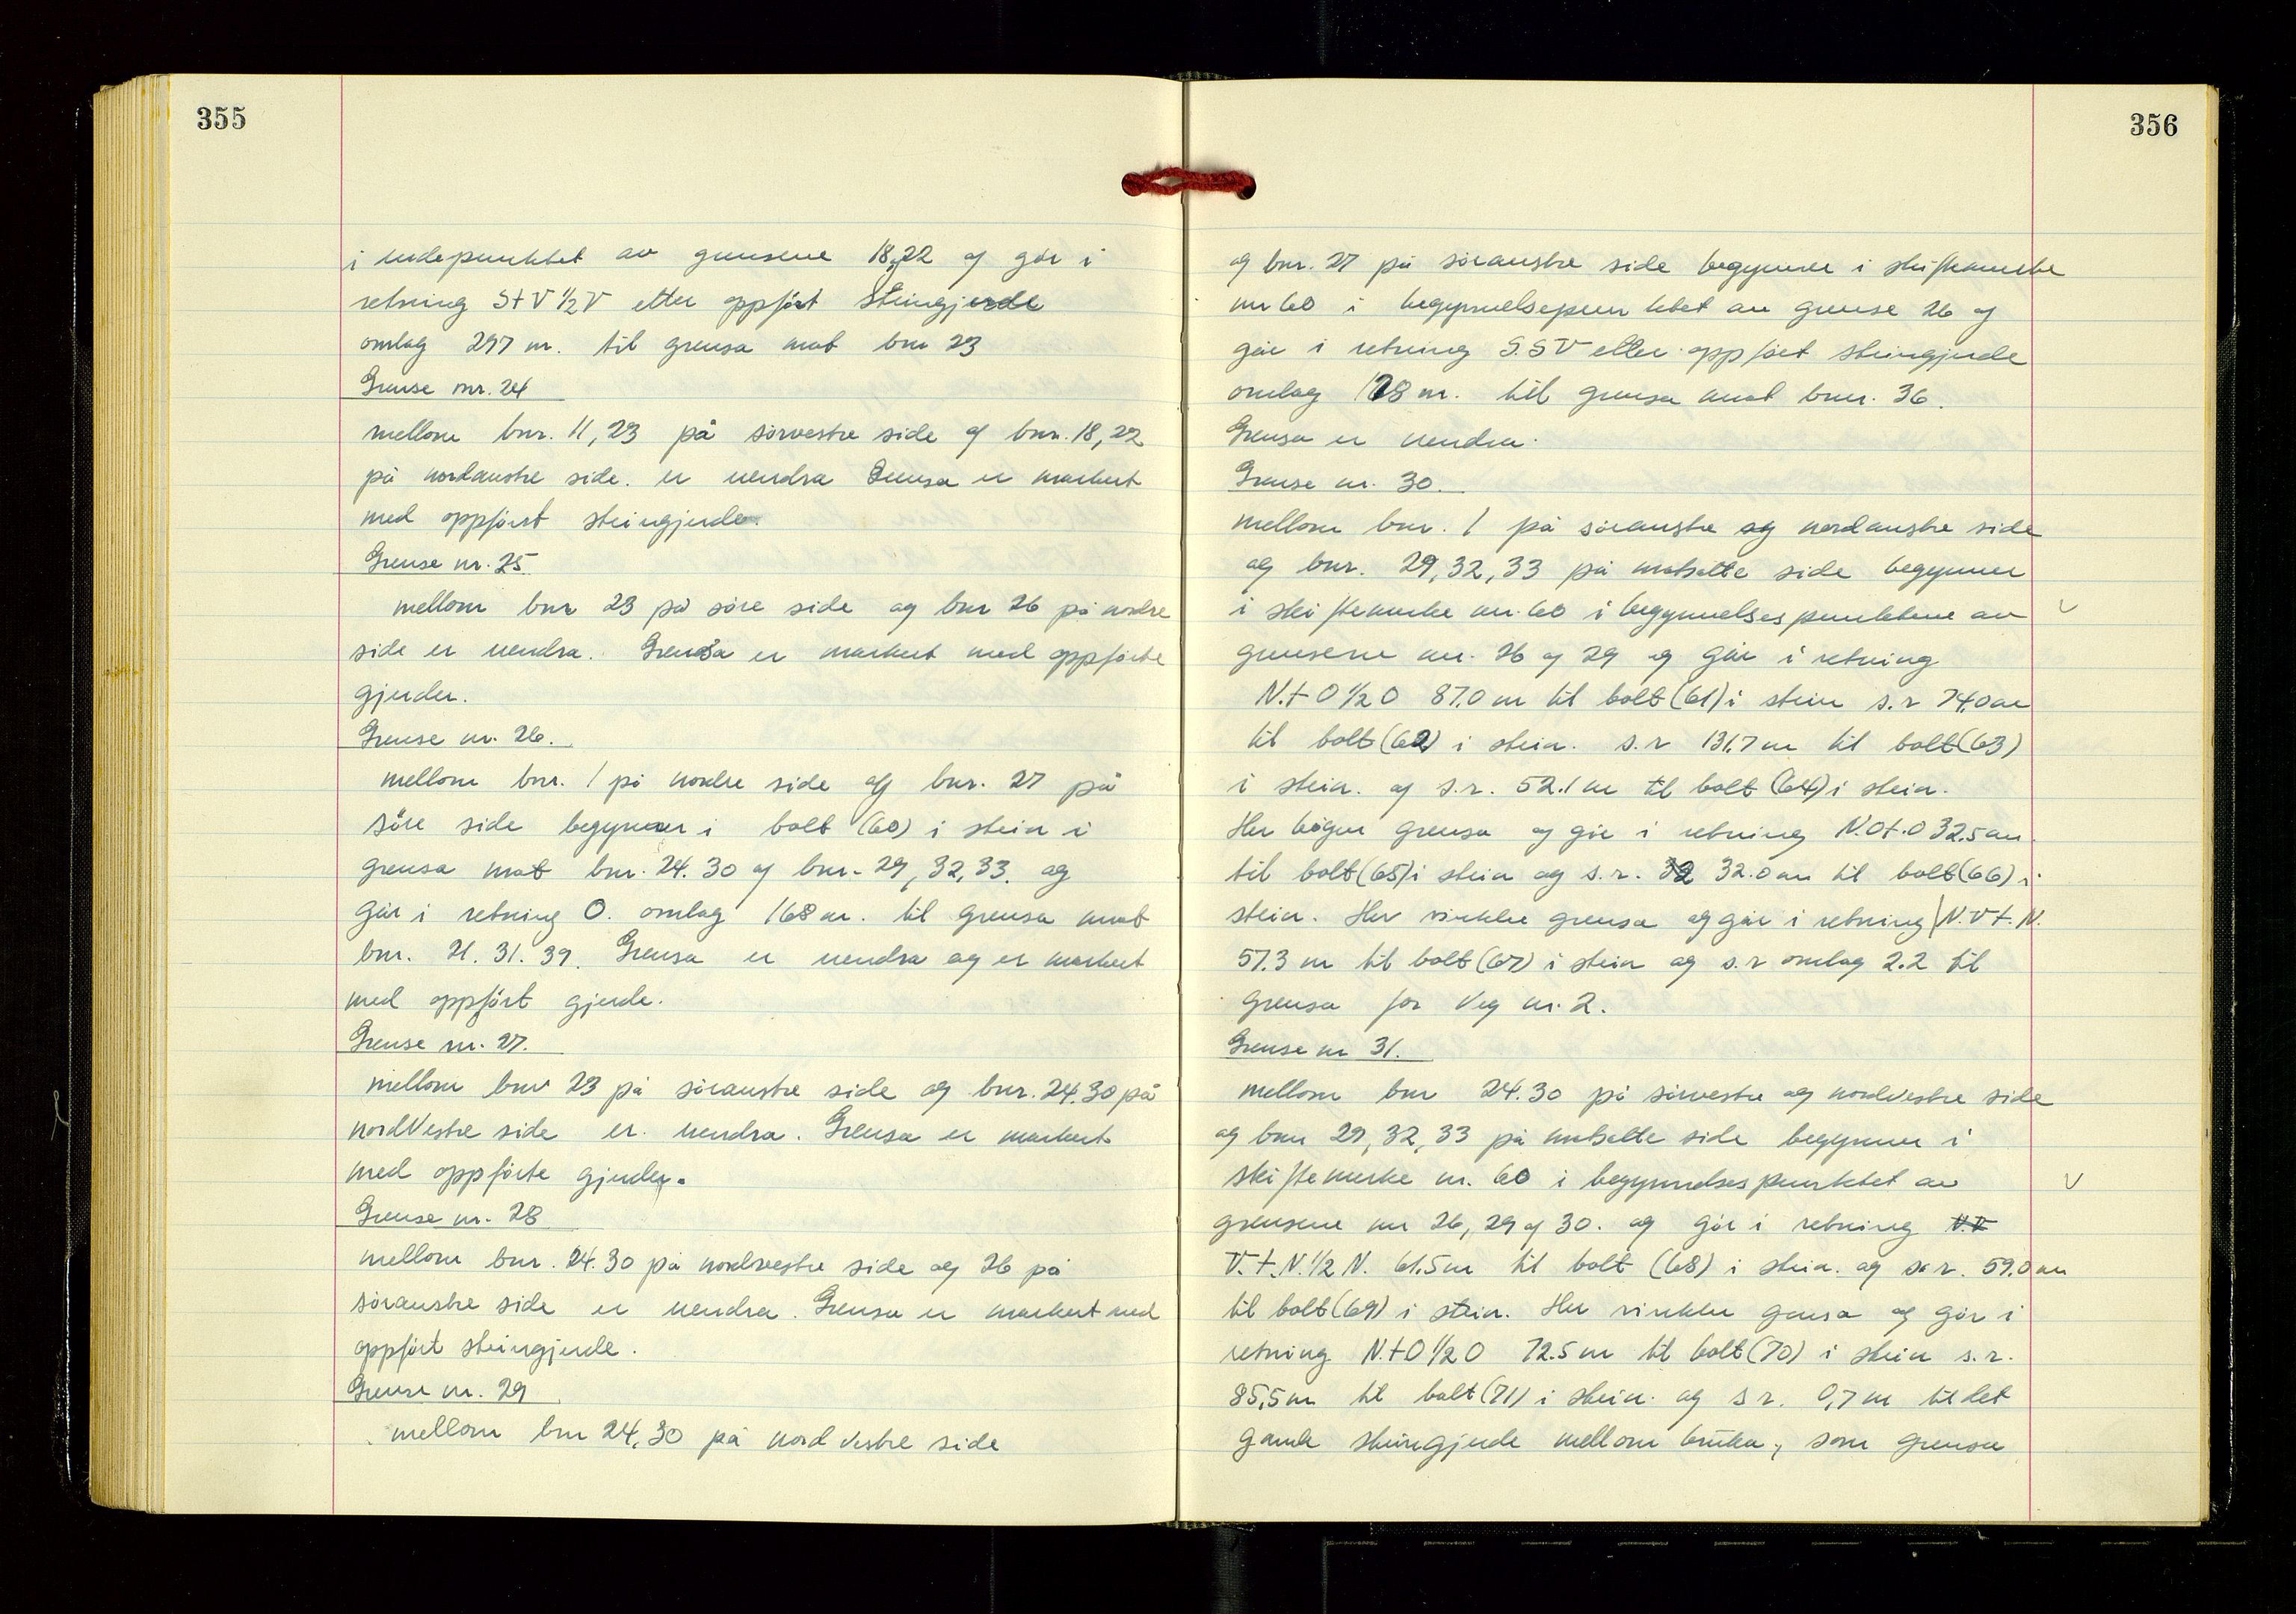 355
i endepunktet av grensene 18,22 og går i
retning S t V ½ V etter oppført steingjerde
omlag 297 m. til grensa mot bnr 23
Grense nr. 24
mellom bnr. 11, 23 på sørvestre side og bnr. 18, 22
på nordaustre side. er uendra Grensa er markert
med oppført steingjerde.
Grense nr. 25
mellom bnr 23 på søre side og bnr 26 på nordre
side er uendra. Grensa er markert med oppførte
gjerder.
Grense nr. 26.
mellom bnr. 1 på nordre side og bnr. 27 på
søre side begynner i bolt (60) i stein i
grensa mot bnr. 24. 30 og bnr. 29, 32, 33. og
går i retning O. omlag 168 m. til grensa mot
bnr. 21. 31. 39. Grensa er uendra og er markert
med oppført gjerde.
Grense nr. 27.
mellom bnr 23 på søraustre side og bnr. 24. 30 på
nordvestre side er uendra. Grensa er markert
med oppførte gjerder.
Grense nr. 28
mellom bnr. 24. 30 på nordvestre side og 26 på
søraustre side er uendra. Grensa er markert med
oppført steingjerde.
Grense nr. 29
mellom bnr 24, 30 på nord vestre side
356
og bnr. 27 på søraustre side begynner i skiftemerke
nr 60 i begynnelsepunktet av grense 26 og
går i retning S.SV etter oppført steingjerde
omlag 128 m. til grensa mot bnr. 36.
Grensa er uendra.
Grense nr. 30.
mellom bnr. 1 på søraustre og nordaustre side
og bnr. 29, 32, 33 på motsatte side begynner
i skiftemerke nr. 60 i begynnelsespunktene av
grensene nr. 26 og 29 og går i retning
N.t O ½ O 87.0 m til bolt (61) i stein s.r 74.0 m
til bolt (62) i stein. s.r 131.7 m til bolt (63)
i stein. og s.r. 52.1 m til bolt (64) i stein.
Her bøger grensa og går i retning N.O t.O 32.5 m
til bolt (65) i stein og s.r. 32 32.0 m til bolt (66) i
stein. Her vinkler grensa og går i retning N.V t. N.
57.3 m til bolt (67) i stein og s.r omlag 2.2 til
grensa for Veg nr. 2.
Grense nr 31.
mellom bnr 24. 30 på sørvestre og nordvestre side
og bnr 29, 32, 33 på motsatte side begynner i
skiftemerke nr. 60 i begynnelsespunktet av
grensene nr 26, 29 og 30. og går i retning N.V
V. t. N. ½ N. 61.5 m til bolt (68) i stein. og s.r. 59.0 m
til bolt (69) i stein. Her vinkler gensa og går i
retning N.t O ½ O 72.5 m til bolt (70) i stein s.r.
85,5 m til bolt (71) i stein. og s r. 0,7 m til det
gamle steingjerde mellom bruka, som grensa